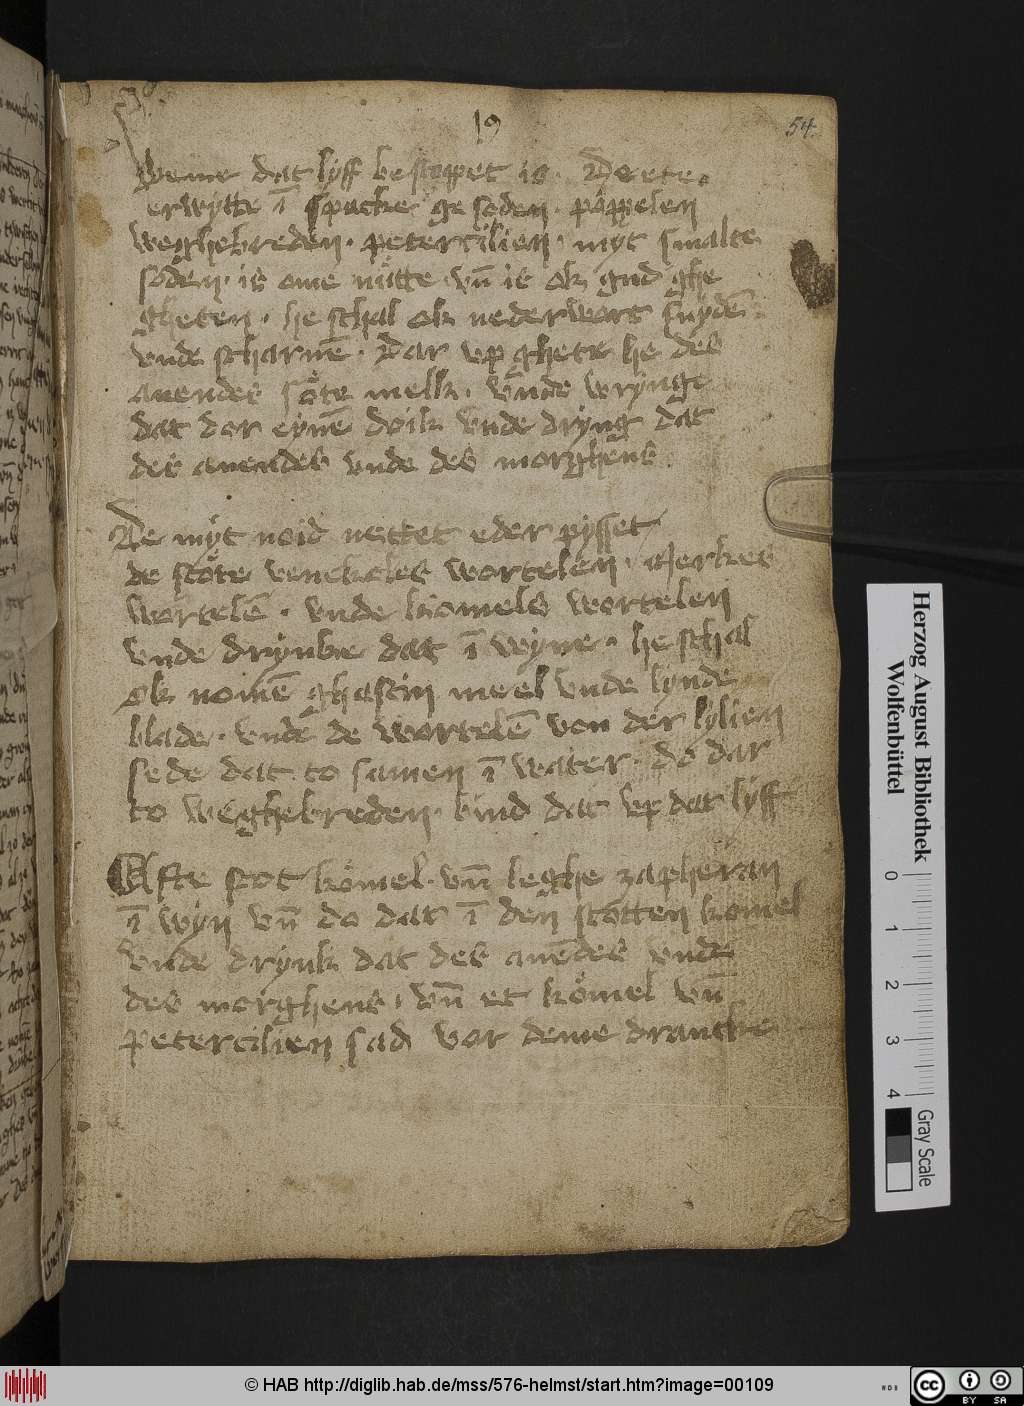 19
54
Weme dat lyff bestoppet is. De ete
erwytte ī spacke gesoden. pöppelen
weghebreden. petercilien. myt smalte
söden. is ome nütte vn̄ is ok gud ghe
gheten. he schal ok nederwort snydē
vnde scharuē. Dar vp ghete he des
auendes söte melk. vnde wrynge
dat dor eynē döik vnde dryng dat
des auendes vnde des morghens
De myt noid nettet eder pysset
de stöte venekoles wortelen. merkes
wortelē. vnde komels wortelen
vnde drynke dat ī wyne. he schal
ok nomē ghestin meel vnde lynde
blade. vnde de wortelē von der lylien
sede dat to samen ī water. do dar
to weghebreden. bind dat vp dat lyff
Afte stot kömel. vn̄ leghe zapheran
ī wyn vn̄ do dat ī den stötten komel
vnde drynk dat des auēdes vnde
des morghens. vn̄ et kömel vn̄
petercilien sad vor deme drancke
Herzog August Bibliothek
Wolfenbüttel
0 1 2 3 4
Gray Scale
© HAB http://diglib.hab.de/mss/576-helmst/start.htm?image=00109
WDB
cc BY SA